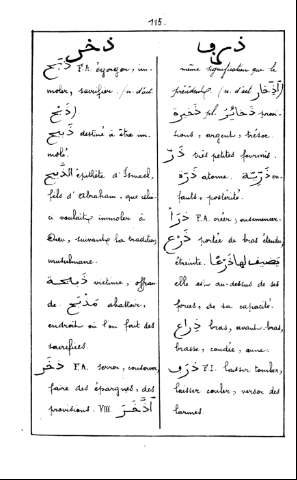 115.
ذخر
ذَبَحَ F.A. égorger, im-
moler, sacrifier. (n. d'act
ذَبْح)
ذَبِيح destiné à être im-
molé.
الذَّبِيح épithète d'Ismael,
fils d'Abraham, que celui-
ci voulait immoler à
Dieu, suivant la tradition
musulmane.
ذَبِيحَة victime, offran-
de. مَذْبَح abattoir,
endroit où l'on fait des
sacrifices.
ذَخَرَ F.A. serrer, conserver,
faire des épargnes, des
provisions. VIII. اَدَّخَرَ
ذرف
même signification que le
précédent. (n. d'act اِدِّخَار)
ذَخِيرَة pl. ذَخَائِر provi-
sions, argent, trésor.
ذَرّ très petites fourmis.
ذَرَّة atome. ذُرِّيَّة en-
fants, postérité.
ذَرَأَ F.A. créer, ensemencer.
ذَرْع portée de bras étendu,
étreinte.
elle est au-dessus de ses
forces, de sa capacité.
ذِرَاع bras, avant-bras,
brasse, coudée, aune.
ذَرَفَ F.I. laisser tomber,
laisser couler, verser des
larmes.